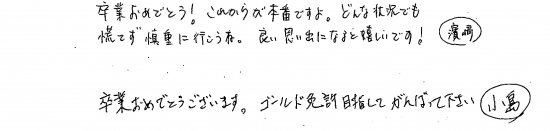 卒業おめでとう！これからが本番ですよ。どんな状況でも
慌てず慎重に行こうね。良い思い出になると嬉しいです！ 濱崎
卒業おめでとうございます。ゴールド免許目指してがんばって下さい 小島